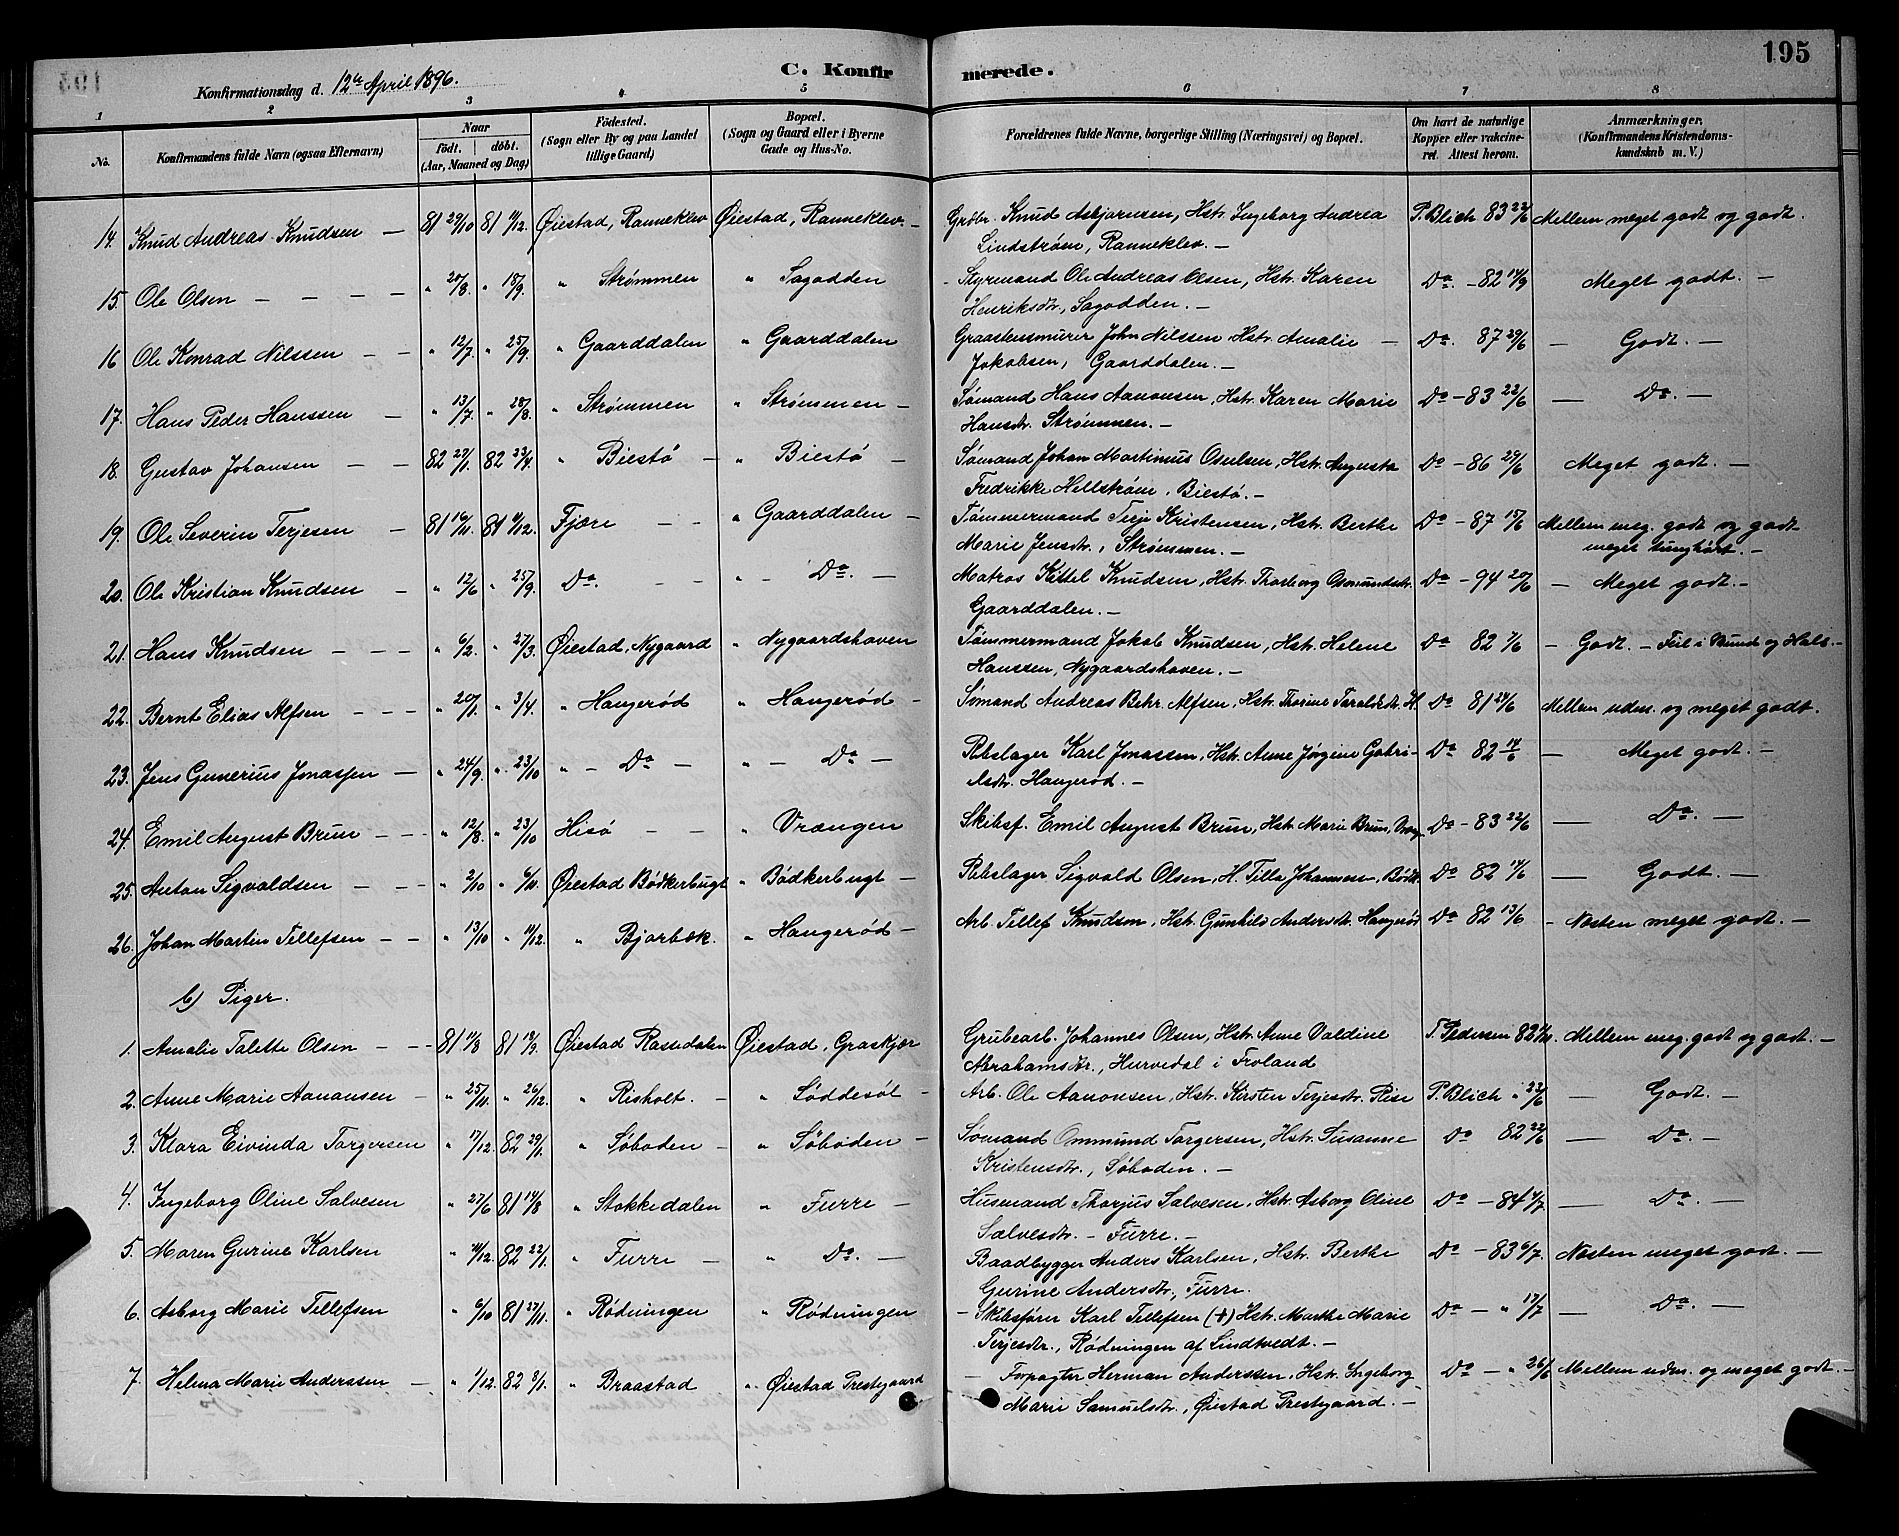 C. Konfirmerede. 195
Konfirmationsdag d. 12te April 1896.
1 2 3 4 5 6 7 8
No. Konfirmandens fulde Navn (ogsaa Efternavn) Naar født. døbt. (Aar, Maaned og Dag) Fødested. (Sogn eller By og paa Landet tillige Gaard) Bopæl. (Sogn og Gaard eller i Byerne Gade og Hus-No. Forældrenes fulde Navne, borgerlige Stilling (Næringsvei) og Bopæl. Om havt de naturlige Kopper eller vakcineret. Attest herom. Anmærkninger. (Konfirmandens Kristendomskundskab m. V.)
14. Knud Andreas Knudsen — 81 29/10 81 11/12. Øiestad, Ranneklev Øiestad, Ranneklev. — Grdbr. Knud Asbjørnsen, Hstr. Ingeborg Andrea P. Blich 83 22/6 Mellem meget godt og godt.
Lindstrøm, Ranneklev. —
15. Ole Olsen — — — — " 20/8. " 18/9. " Strømmen " Sagodden - Styrmand Ole Andreas Olsen, Hstr. Karen Do. — 82 14/9 Meget godt. —
Henriksdtr., Sagodden. —
16 Ole Konrad Nilssen — — " 12/7. " 25/9. " Gaarddalen " Gaarddalen Graastensmurer John Nilssen Hstr. Amalie — Do. 87 29/6 — Godt. —
Jakobsen, Gaarddalen. —
17. Hans Peder Hanssen — " 13/7. " 28/8. " Strømmen " Strømmen — Sømand Hans Aanonsen, Hstr. Karen Marie Do — 83 22/6 — Do. —
Hansdtr. Strømmen. —
18. Gustav Johansen — — 82 27/1. 82 23/4. " Biestø — " Biestø — Sømand Johan Martinius Osulsen, Hstr. Augusta Do — 86 29/6 Meget godt. —
Fredrikke Hellstrøm, Biestø. —
19. Ole Severin Terjesen — 81 16/11. 81 11/12. Fjære — — " Gaarddalen — Tømmermand Terje Kristensen, Hstr. Berthe Do — 87 15/6 Mellem meg. godt og godt —
Marie Jensdtr., Strømmen. — meget tunghørt. —
20. Ole Kristian Knudsen — " 12/6 " 25/9. Do. — — " — Do. — Matros Kittel Knudsen, Hstr. Thorborg Osmundsdtr. Do — 94 20/6 — Meget godt. —
Gaarddalen. —
21. Hans Knudsen — — — " 6/2. " 27/3. Øiestad, Nygaard " Nygaardshaven Tømmermand Jakob Knudsen, Hstr. Helene Do 82 7/6 — Godt. — Feil i Mund og Hals. —
Hanssen, Nygaardshaven. —
22. Bernt Elias Alfsen — — — " 20/1. " 3/4. " Hangerød " Hangerød — Sømand Andreas Behr. Alfsen, Hstr. Thorine Taraldsdtr. H. Do 81 24/6 Mellem udm. og meget godt.
23. Jens Gunerius Jonassen — " 24/9. " 23/10 " — Do — " — Do — Rebslager Karl Jonassen, Hstr. Anne Jørgine Gabri- Do 82 14/6 — Meget godt. —
elsdtr. Hangerød. —
24. Emil August Brun — — — " 12/8. " 23/10 Hisø — — " Vrængen Skibsf. Emil August Brun, Hstr. Marie Brun, Vræng. Do — 83 22/6 — Do. —
25. Anton Sigvaldsen — — — " 2/10 " 6/11. Øiestad Bødkerbugt " Bødkerbugt — Rebslager Sigvald Olsen, H. Tilla Johannesen, Bødk. Do 82 14/6 — Godt. —
26. Johan Martin Tellefsen — — " 13/10 " 11/12. " Bjorbæk. " Hangerød — Arb. Tellef Knudsen, Hstr. Gunhild Andersdtr. Hangerød Do 82 13/6 — Næsten meget godt. —
b) Piger.
1. Amalie Talette Olsen — — 81 11/8 81 18/9. Øiestad Rassedalen Øiestad, Graskjær Grubearb. Johannes Olsen, Hstr. Anne Valdine T. Pedersen 82 Mellem meg. godt og godt. —
Abrahamsdtr., Hurvedal i Froland
2. Anne Marie Aanonsen — " 25/11. " 26/12. " Risholt. — " Løddesøl — Arb. Ole Aanonsen, Hstr. Kirsten Terjesdtr. Rise P. Blich " 23/6 — Godt. —
3. Klara Eivinda Torgersen " 17/12. 82 29/1. " Søboden — " Søboden — Sømand Ommund Torgersen, Hstr. Susanne Do 82 22/6 — Do. —
Kristensdtr., Søboden. —
4. Ingeborg Oline Salvesen " 27/6 81 14/8 " Stokkedalen " Furre — Husmand Thorjus Salvesen, Hstr. Asborg Oline Do — 84 4/7 — Do. —
Salvesdtr. — Furre. —
5. Maren Gurine Karlsen " 4/12. 82 22/1. " Furre — " Do. — Baadbygger Anders Karlsen, Hstr. Berthe Do — 83 6/7. Næsten meget godt. —
Gurine Andersdtr., Furre.
6. Asborg Marie Tellefsen " 6/10 81 27/11. " Rødningen " Rødningen — Skibsfører Karl Tellefsen (+) Hstr. Marthe Marie Do — " 17/7 — Do. —
Terjesdtr., Rødningen af Lindtvedt. —
7. Helena Marie Anderssen — " 1/12. 82 8/1. " Braastad " Øiestad Prestegaard — Forpagter Herman Anderssen, Hstr. Ingeborg Do — " 26/6 Mellem udm. og meget godt. —
Marie Samuelsdtr., Øiestad Prestegaard. —